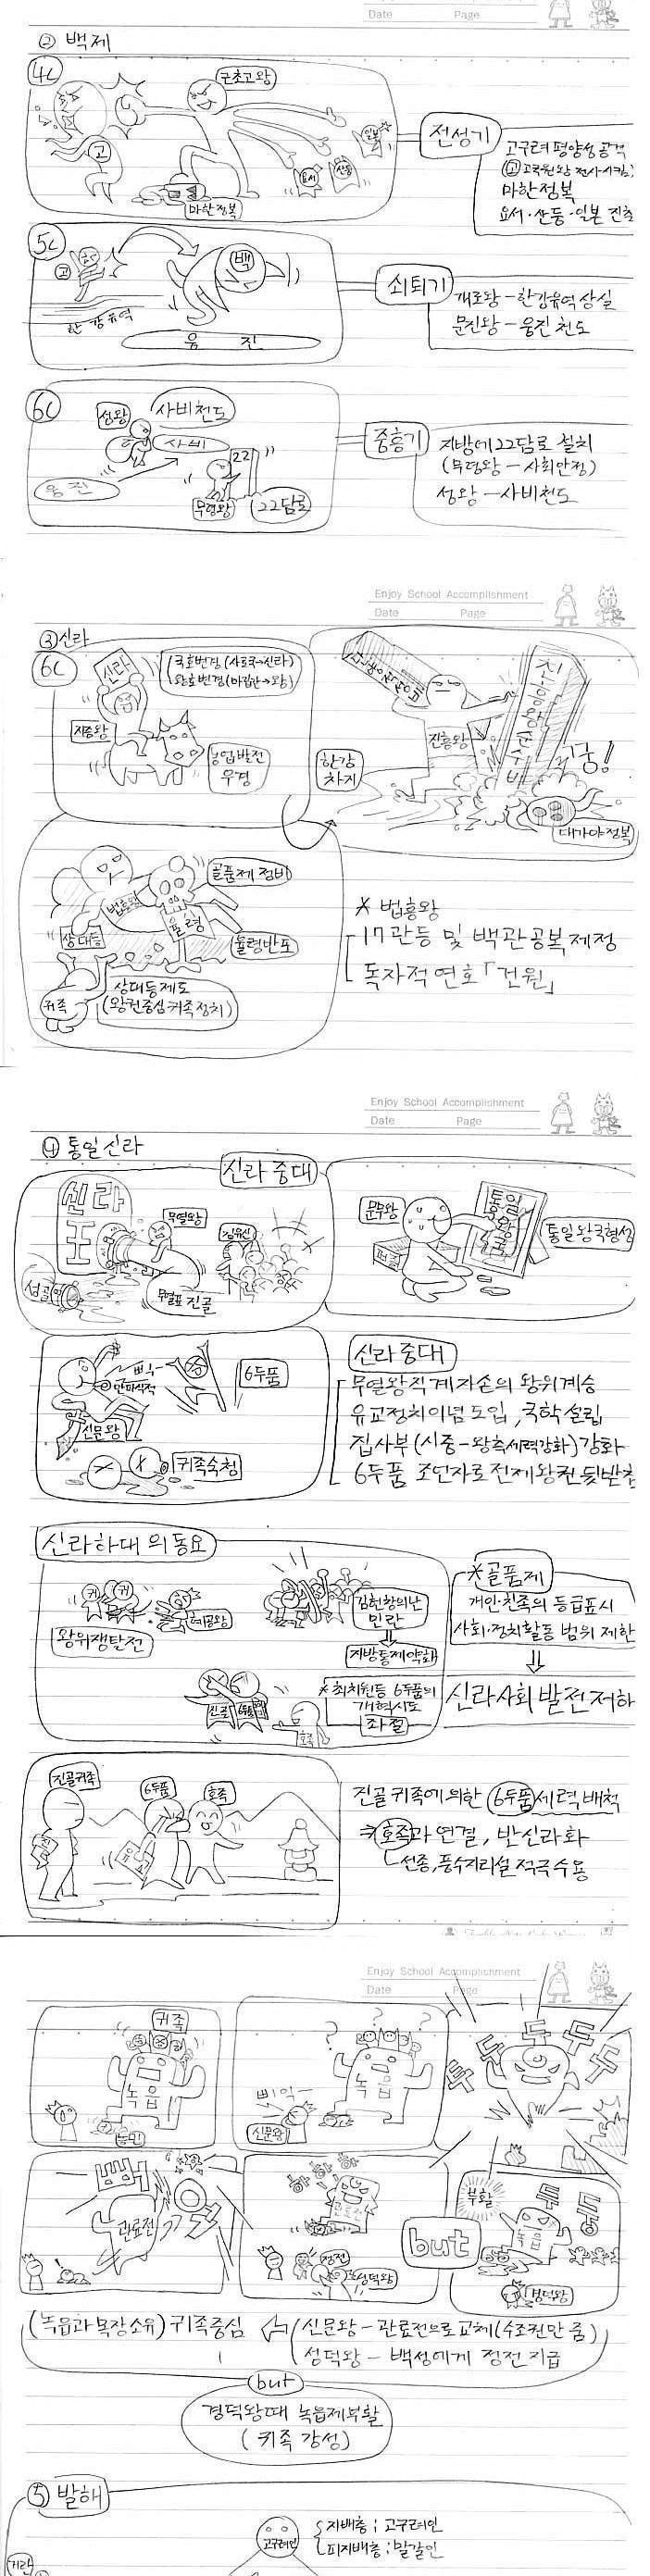 Date Page
② 백제
4C
근초고왕
고
일본
요서
산둥
마한정복
전성기
고구려 평양성 공격
(고 고국원왕 전사시킴)
마한정복
요서·산둥·일본 진출
5C
고
백
한강유역
웅진
쇠퇴기
개로왕 - 한강유역 상실
문진왕 - 웅진천도
6C
성왕
사비천도
사비
웅진
22
무령왕
22담로
중흥기
지방에 22담로 설치
(무령왕 - 사회안정)
성왕 - 사비천도
Enjoy School Accomplishment
Date Page
③ 신라
6C
신라
국호변경(사로국→신라)
왕호변경(마립간→왕)
지증왕
농업발전
우경
진흥왕순수비
진흥왕
한강
차지
쿵!
대가야정복
골품제 정비
법흥왕
율령
상대등
율령반포
귀족
상대등제도
(왕권중심귀족정치)
* 법흥왕
17관등 및 백관공복제정
독자적 연호 「건원」
Enjoy School Accomplishment
Date Page
④ 통일신라
신라 중대
신라
무열왕
김유신
성골
무열표 진골
문무왕
통일
왕국
통일 왕국형성
삐익
만파식적
6두품
신문왕
귀족숙청
신라중대
무열왕직계자손의 왕위계승
유교정치이념도입, 국학 설립
집사부(시중-왕측세력강화)강화
6두품 조언자로 전제왕권 뒷받침
신라하대의 동요
귀 귀
혜공왕
왕위쟁탈전
김헌창의난
민란
⇓
지방통제약화
* 최치원등 6두품의
개혁시도
좌절
진골
호족
* 골품제
개인·친족의 등급표시
사회·정치활동 범위 제한
⇓
신라사회 발전저하
진골귀족
6두품
호족
진골귀족에 의한 6두품세력배척
호족과 연결, 반신라화
선종, 풍수지리설 적극수용
Enjoy School Accomplishment
Date Page
귀족
녹읍
농민
? ? ? ?
녹읍
삐익
신문왕
두 두 두 두 두
빠
관료전
하하하
정전
성덕왕
but
부활
두둥
녹읍
경덕왕
(녹읍과 목장소유) 귀족중심 ⇐ 신문왕 - 관료전으로 교체(수조권만 줌)
성덕왕 - 백성에게 정전지급
but
경덕왕때 녹읍제부활
(귀족 강성)
⑤ 발해
고구려인
지배층; 고구려인
피지배층; 말갈인
거란